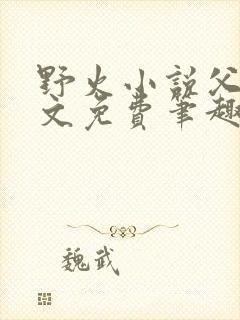 野火小说父
文免费笔趣
魏武